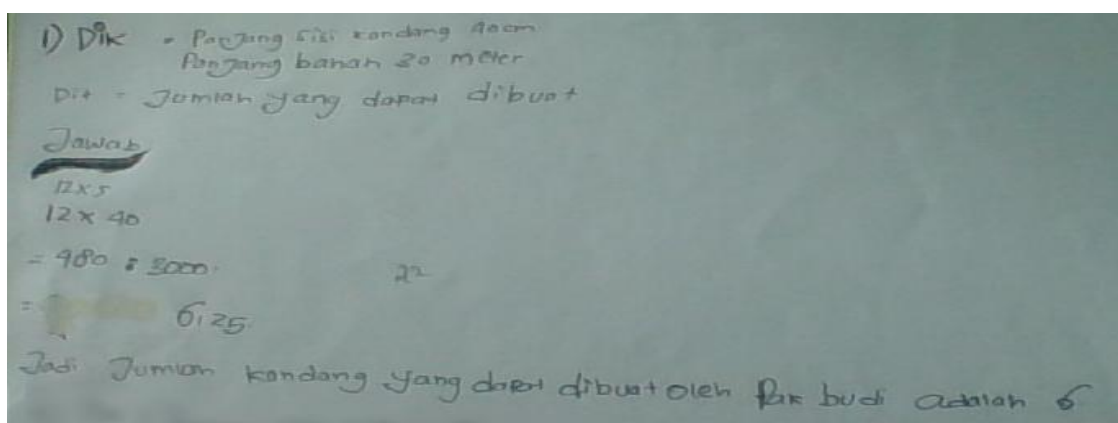 1) Dik = Panjang sisi kandang 40cm
Panjang bahan 30 meter
Dit = Jumlah yang dapat dibuat
Jawab
12 x 5
12 x 40
= 480 : 3000
22
= 6,25
Jadi Jumlah kandang yang dapat dibuat oleh Pak budi adalah 6